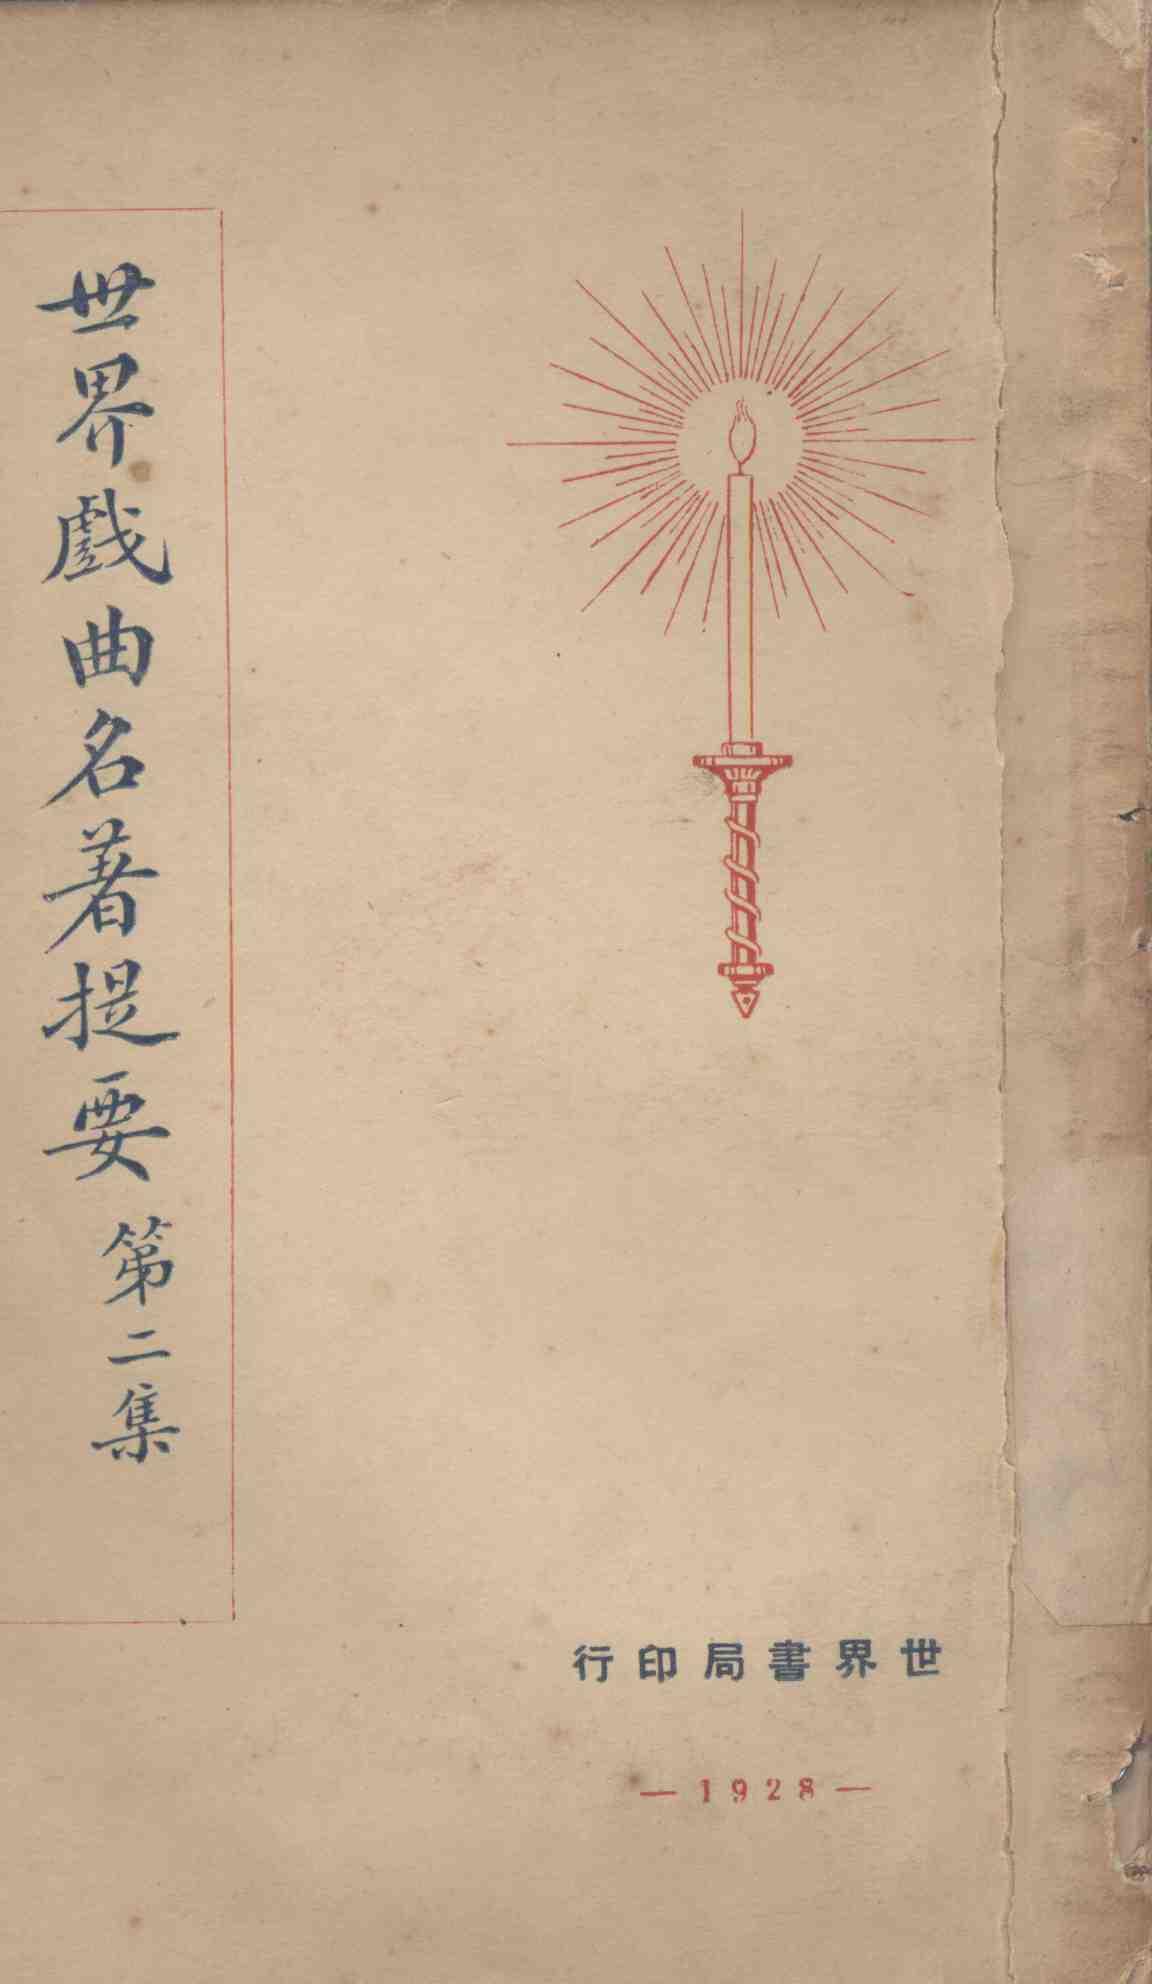 世界戲曲名著提要
第二集
世界書局印行
—1928—